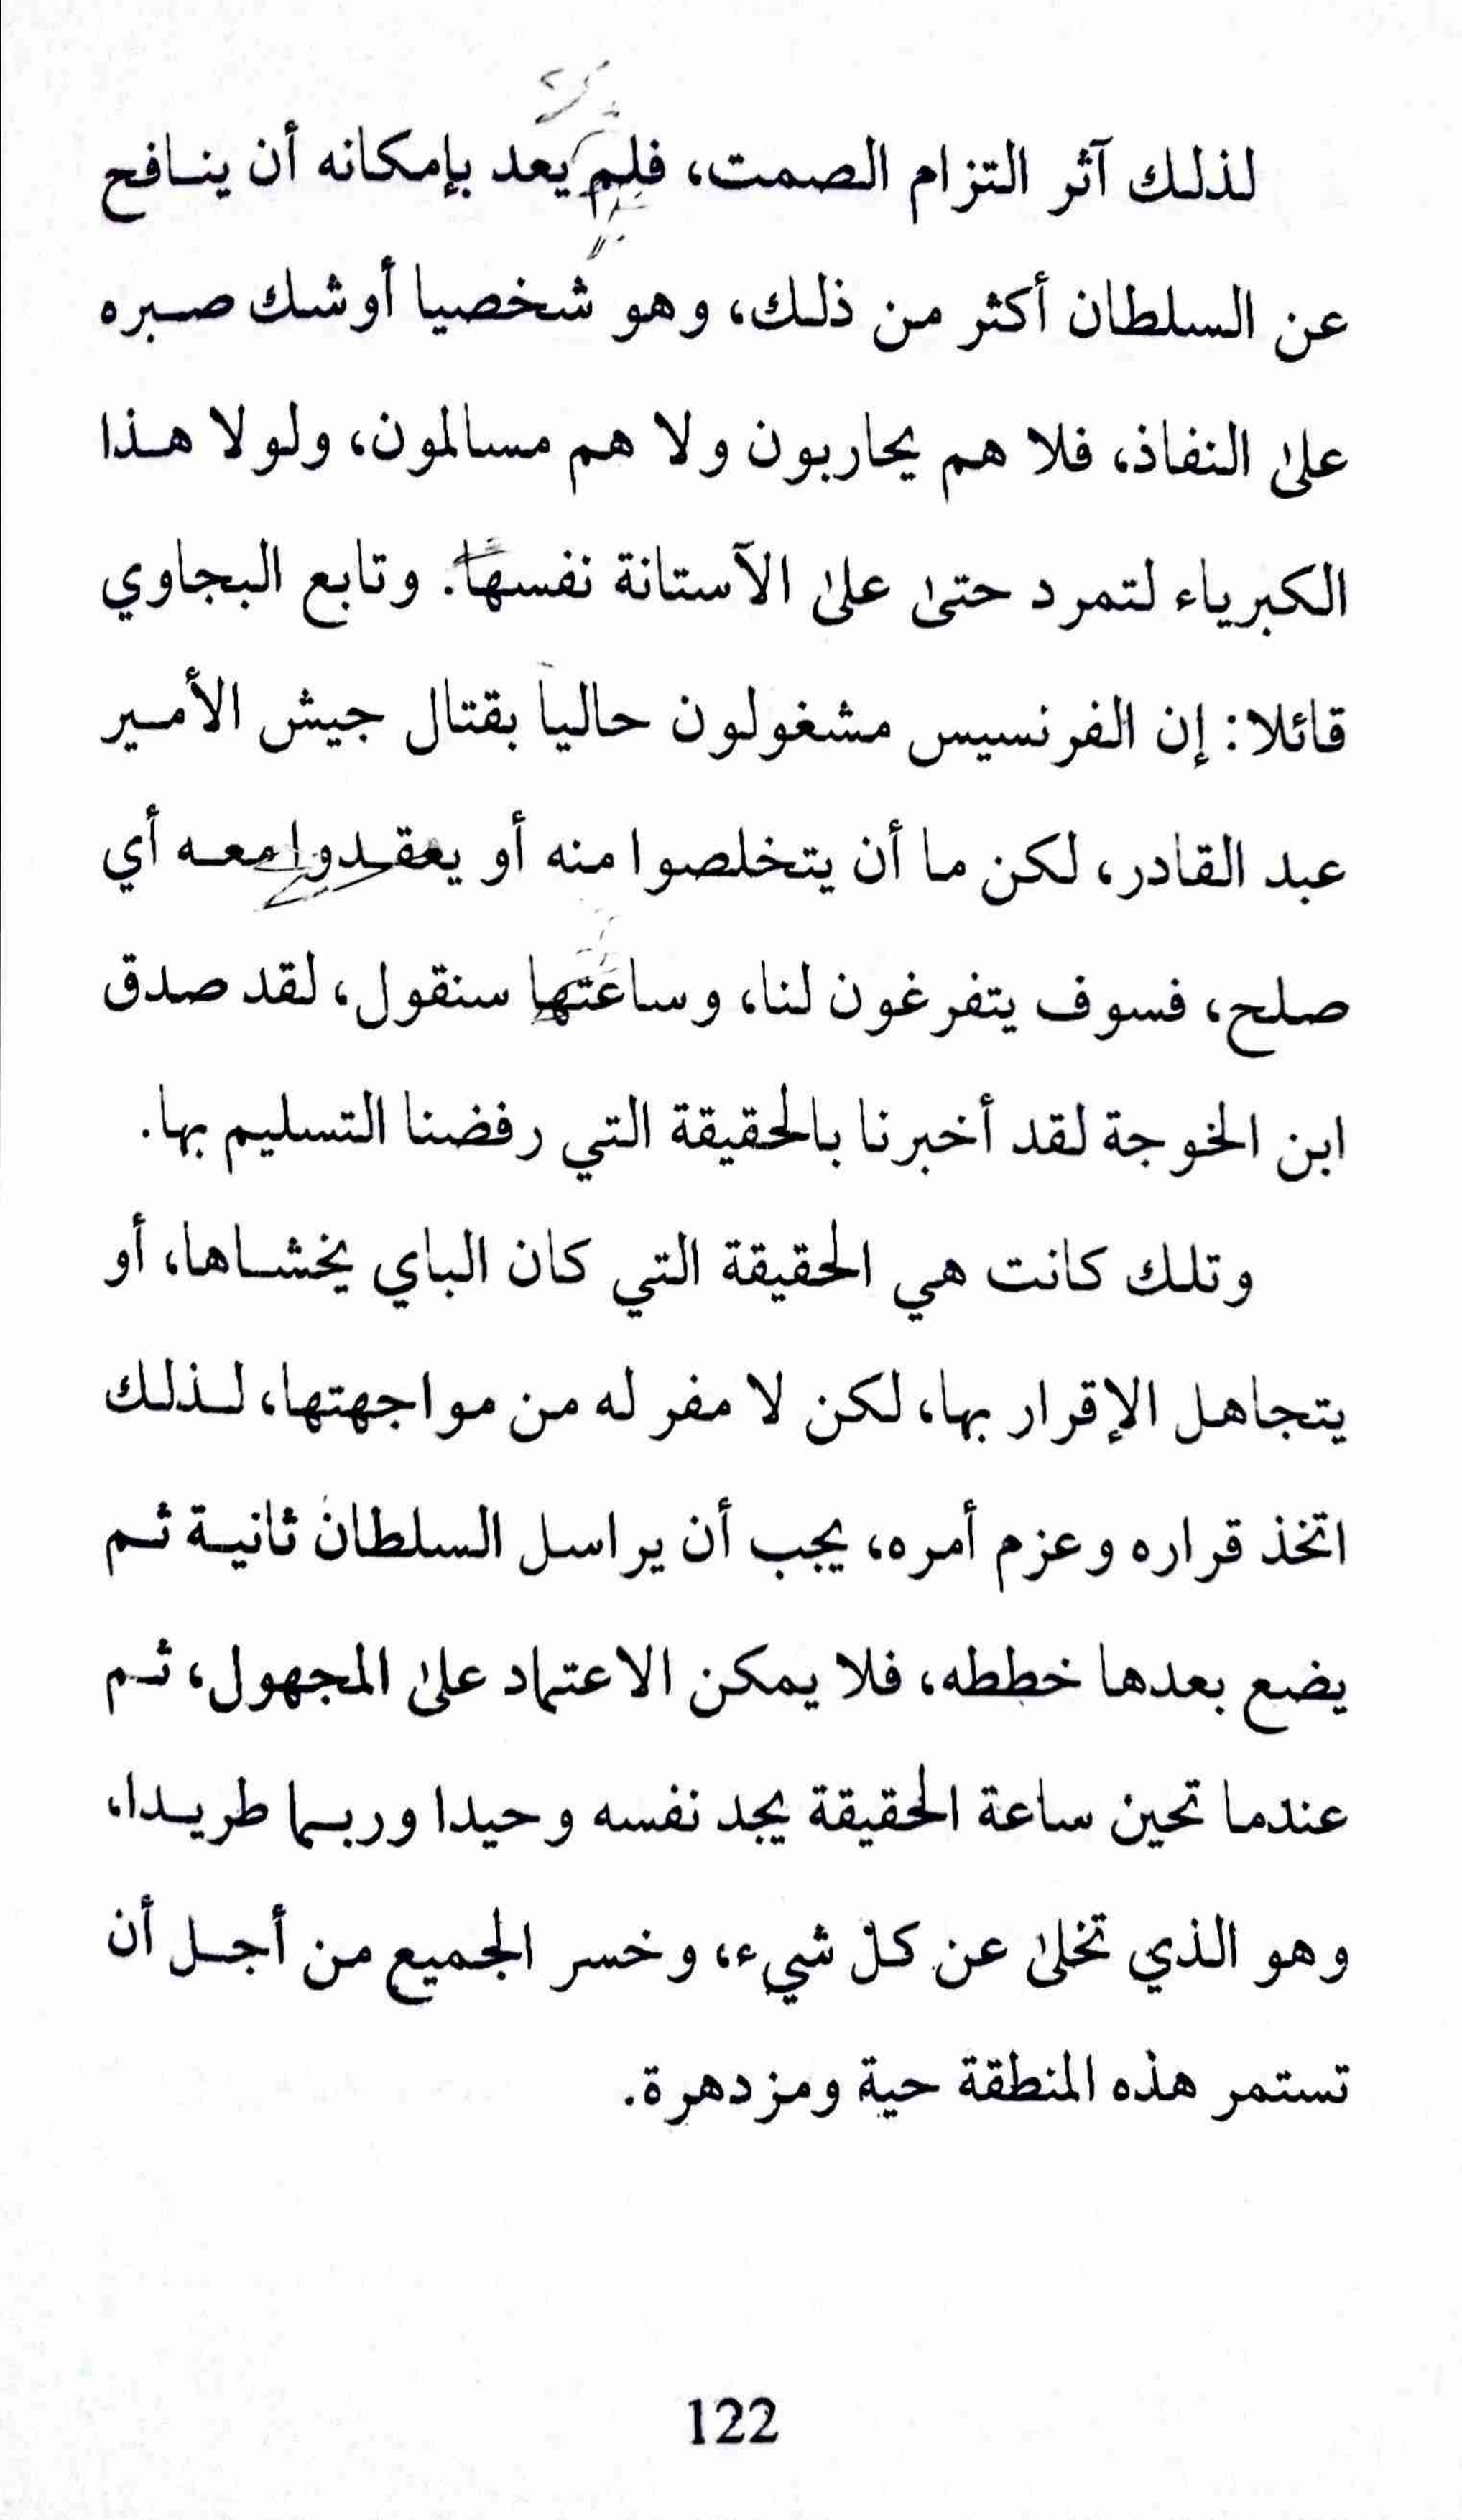 لذلك آثر التزام الصمت، فلم يعد بإمكانه أن ينافح
عن السلطان أكثر من ذلك، وهو شخصيا أوشك صبره
على النفاذ، فلا هم يحاربون ولا هم مسالمون، ولولا هذا
الكبرياء لتمرد حتى على الآستانة نفسها. وتابع البجاوي
قائلا: إن الفرنسيس مشغولون حاليا بقتال جيش الأمير
عبد القادر، لكن ما أن يتخلصوا منه أو يعقدوا معه أي
صلح، فسوف يتفرغون لنا، وساعتها سنقول، لقد صدق
ابن الخوجة لقد أخبرنا بالحقيقة التي رفضنا التسليم بها.
وتلك كانت هي الحقيقة التي كان الباي يخشاها، أو
يتجاهل الإقرار بها، لكن لا مفر له من مواجهتها، لذلك
اتخذ قراره وعزم أمره، يجب أن يراسل السلطان ثانية ثم
يضع بعدها خططه، فلا يمكن الاعتماد على المجهول، ثم
عندما تحين ساعة الحقيقة يجد نفسه وحيدا وربما طريدا،
وهو الذي تخلى عن كل شيء، وخسر الجميع من أجل أن
تستمر هذه المنطقة حية ومزدهرة.
122